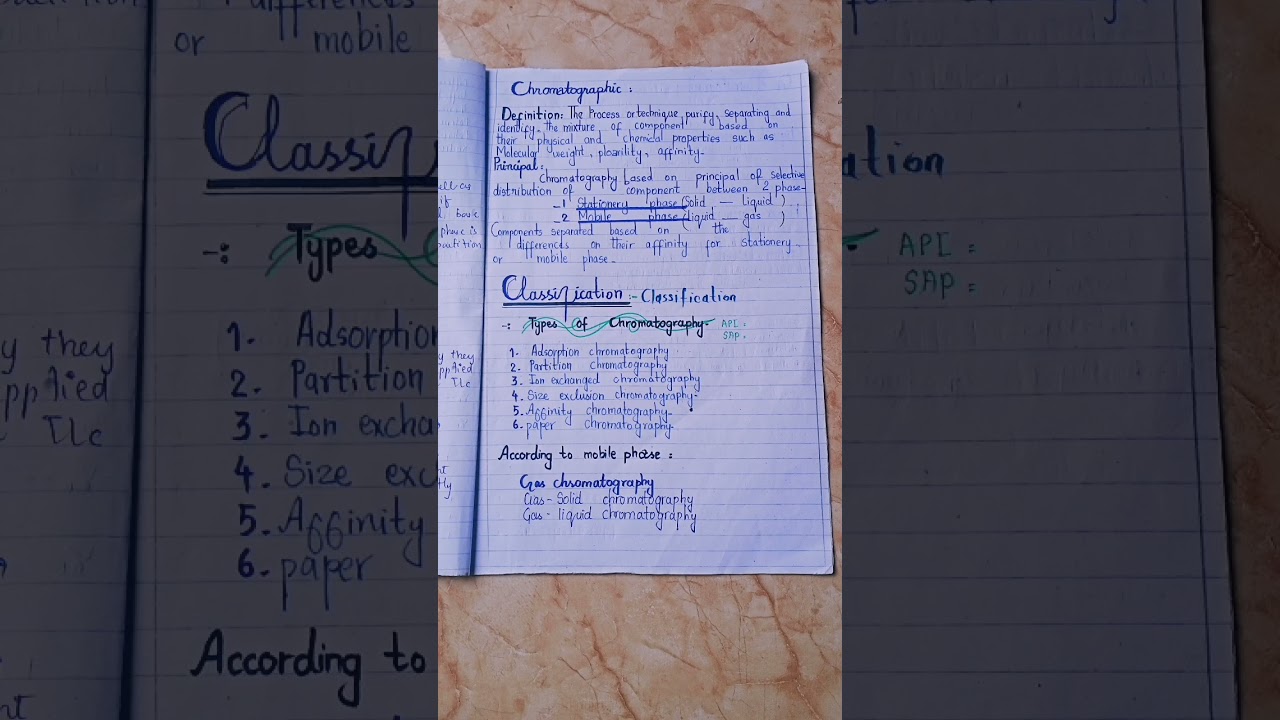 Chromatographic :
Definition: The Process or technique purify, separating and
identify the mixture of component based on
their physical and chemical properties such as
Molecular weight, ploarility, affinity.
Principal:
Chromatography based on principal of selective
distribution of component between 2 phase-
-1 Stationery phase (Solid - liquid)
-2 Mobile phase (liquid - gas )
Components separated based on the
differences on their affinity for stationery
or mobile phase.
Classification :- Classification
-: Types of Chromatography- API :
SAP .
1. Adsorption chromatography
2. Partition chromatography
3. Ion exchanged chromatography
4. Size exclusion chromatography-
5. Affinity chromatography-
6. paper chromatography-
According to mobile phase :
Gas chromatography
Gas - Solid chromatography
Gas - liquid chromatography
or mobile
Classif
ation
-: Types
API :
SAP :
1. Adsorption
2. Partition
3. Ion excha
4. Size exc
5. Affinity
6. paper
According to
y they
applied
Ilc